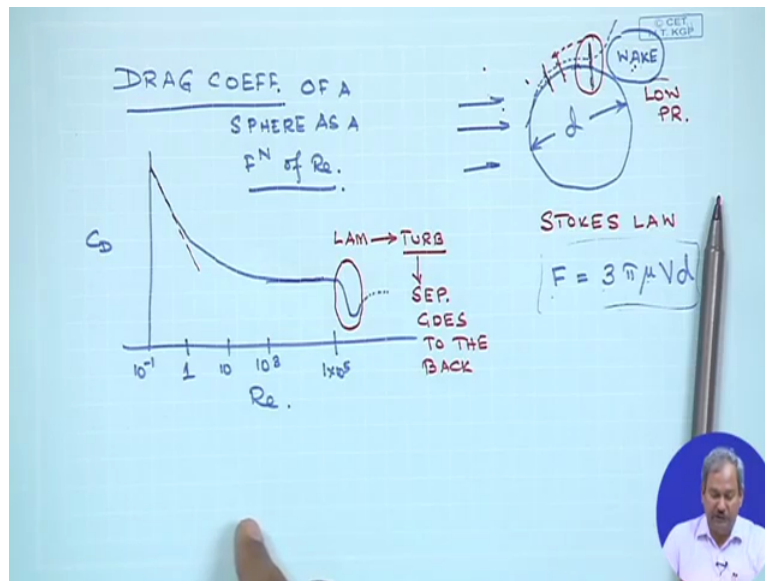 DRAG COEFF. OF A
SPHERE AS A
Fᴺ of Re.
© CET
I.T. KGP
WAKE
LOW
PR.
d
STOKES LAW
F = 3πμVd
C_D
LAM → TURB
SEP.
GOES
TO THE
BACK
10⁻¹ 1 10 10³ 1x10⁵
Re.